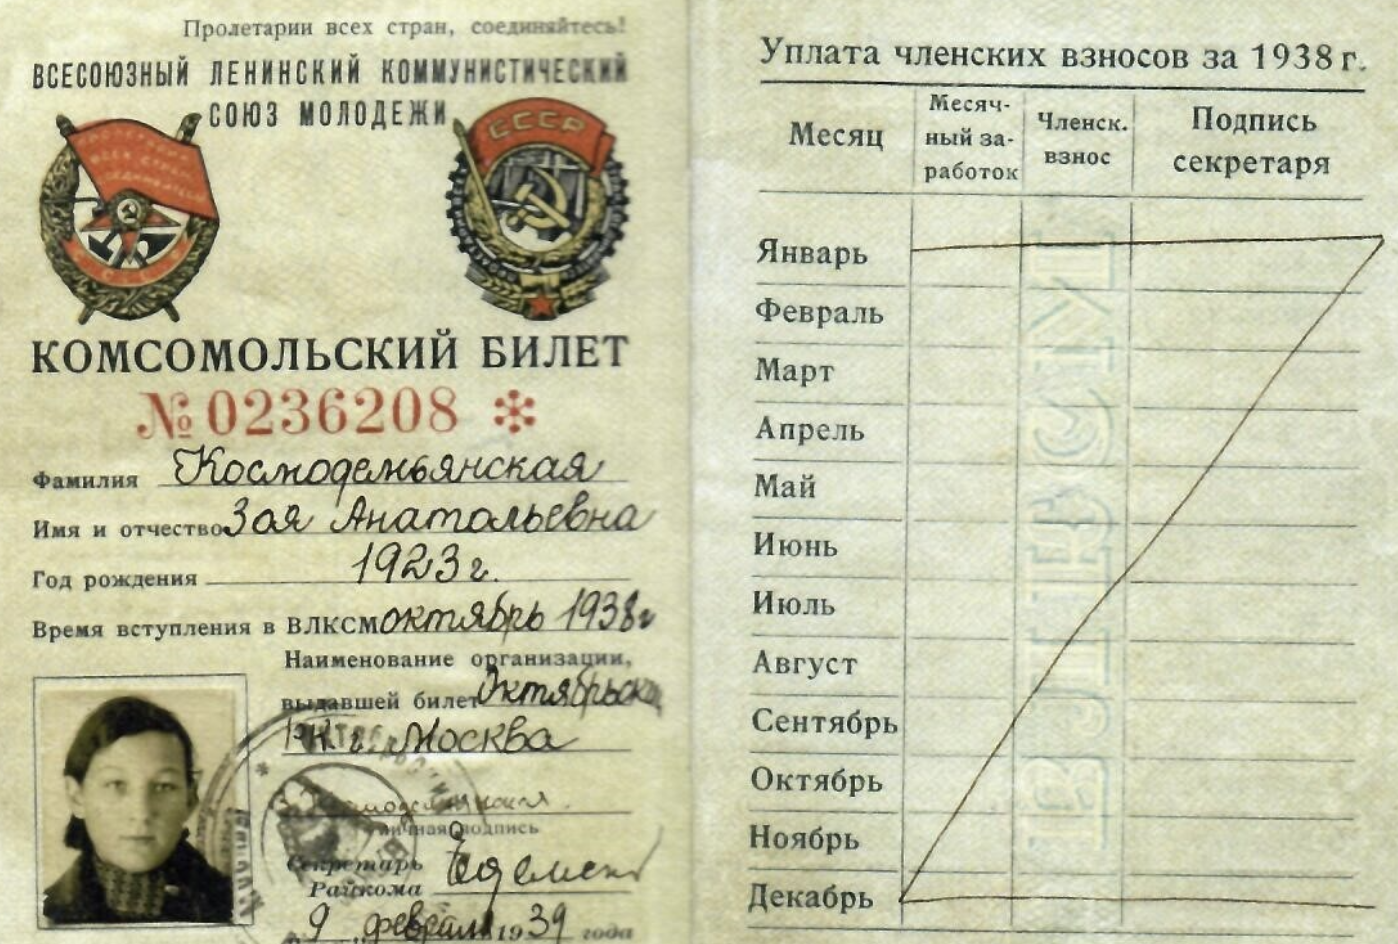 Пролетарии всех стран, соединяйтесь!
ВСЕСОЮЗНЫЙ ЛЕНИНСКИЙ КОММУНИСТИЧЕСКИЙ
СОЮЗ МОЛОДЕЖИ
СССР
КОМСОМОЛЬСКИЙ БИЛЕТ
№ 0236208 *
Фамилия Космодемьянская
Имя и отчество Зоя Анатольевна
Год рождения 1923 г.
Время вступления в ВЛКСМ октябрь 1938 г
Наименование организации,
выдавшей билет Октябрьск
РК г. Москва
З. Космодемьянская.
Личная подпись
Секретарь
Райкома
9 февраля 1939 года
Уплата членских взносов за 1938 г.
Месяц
Месяч-
ный за-
работок
Членск.
взнос
Подпись
секретаря
Январь
Февраль
Март
Апрель
Май
Июнь
Июль
Август
Сентябрь
Октябрь
Ноябрь
Декабрь
ВЛКСМ